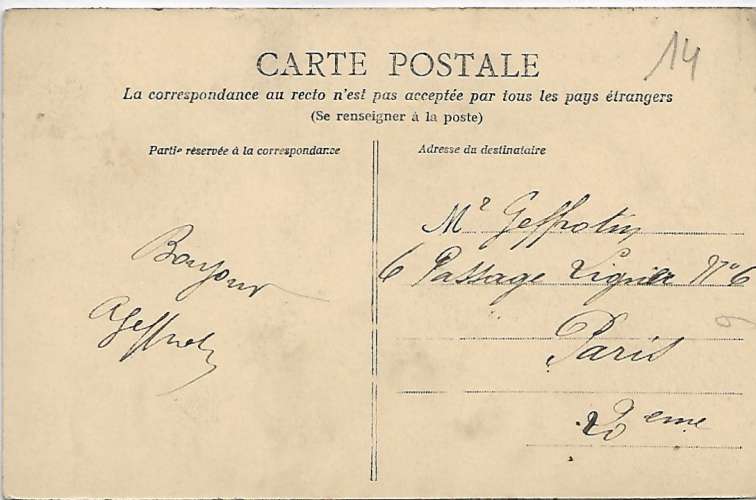 14
CARTE POSTALE
La correspondance au recto n'est pas acceptée par tous les pays étrangers
(Se renseigner à la poste)
Partie réservée à la correspondance
Adresse du destinataire
Bonjour
AGeffrotin
Mr Geffrotin
6 Passage Ligner N° 6
Paris
20eme